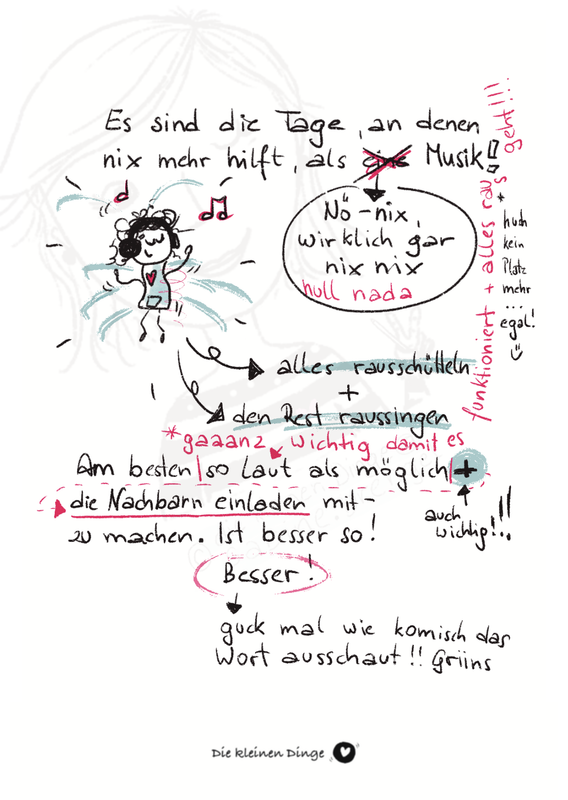 Es sind die Tage, an denen
nix mehr hilft, als eine Musik!
Nö-nix,
wirklich gar
nix nix
null nada
alles rausschütteln
+
den Rest raussingen
*gaaanz wichtig damit es
funktioniert + alles raus geht!!!!
* huch
kein
Platz
mehr
...
egal!
Am besten so laut als möglich +
die Nachbarn einladen mit-
zu machen. Ist besser so!
auch
wichtig!!!
Besser!
guck mal wie komisch das
Wort ausschaut!! Griins
Die kleinen Dinge